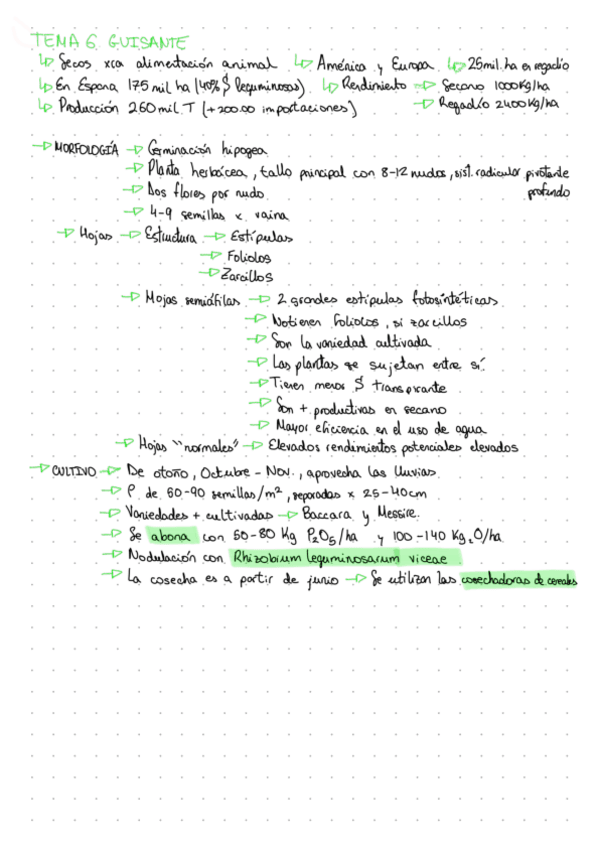 TEMA 6. GUISANTE
↳ Secos xca alimentación animal ↳ América y Europa ↳ 25mil. ha en regadío
↳ En España 175 mil ha (40% S leguminosas) ↳ Rendimiento → Secano 1000Kg/ha
↳ Producción 260 mil T (+200.00 importaciones) → Regadío 2400 Kg/ha
→ MORFOLOGÍA → Germinación hipogea
→ Planta herbácea, tallo principal con 8-12 nudos, sist. radicular pivotante
profundo
→ Dos flores por nudo
→ 4-9 semillas x vaina
→ Hojas → Estructura → Estípulas
→ Foliolos
→ Zarcillos
→ Hojas semiáfilas → 2 grandes estípulas fotosintéticas
→ No tienen foliolos, si zarcillos
→ Son la variedad cultivada
→ Las plantas se sujetan entre sí
→ Tienen menos S transpirante
→ Son + productivas en secano
→ Mayor eficiencia en el uso de agua
→ Hojas "normales" → Elevados rendimientos potenciales elevados
→ CULTIVO → De otoño, Octubre - Nov., aprovecha las lluvias
→ P de 60-90 semillas/m², separadas x 25-40cm
→ Variedades + cultivadas → Baccara y Messire.
→ Se abona con 50-80 Kg P₂O₅/ha y 100-140 Kg₂O/ha
→ Nodulación con Rhizobium leguminosarum viceae
→ La cosecha es a partir de junio → Se utilizan las cosechadoras de cereales